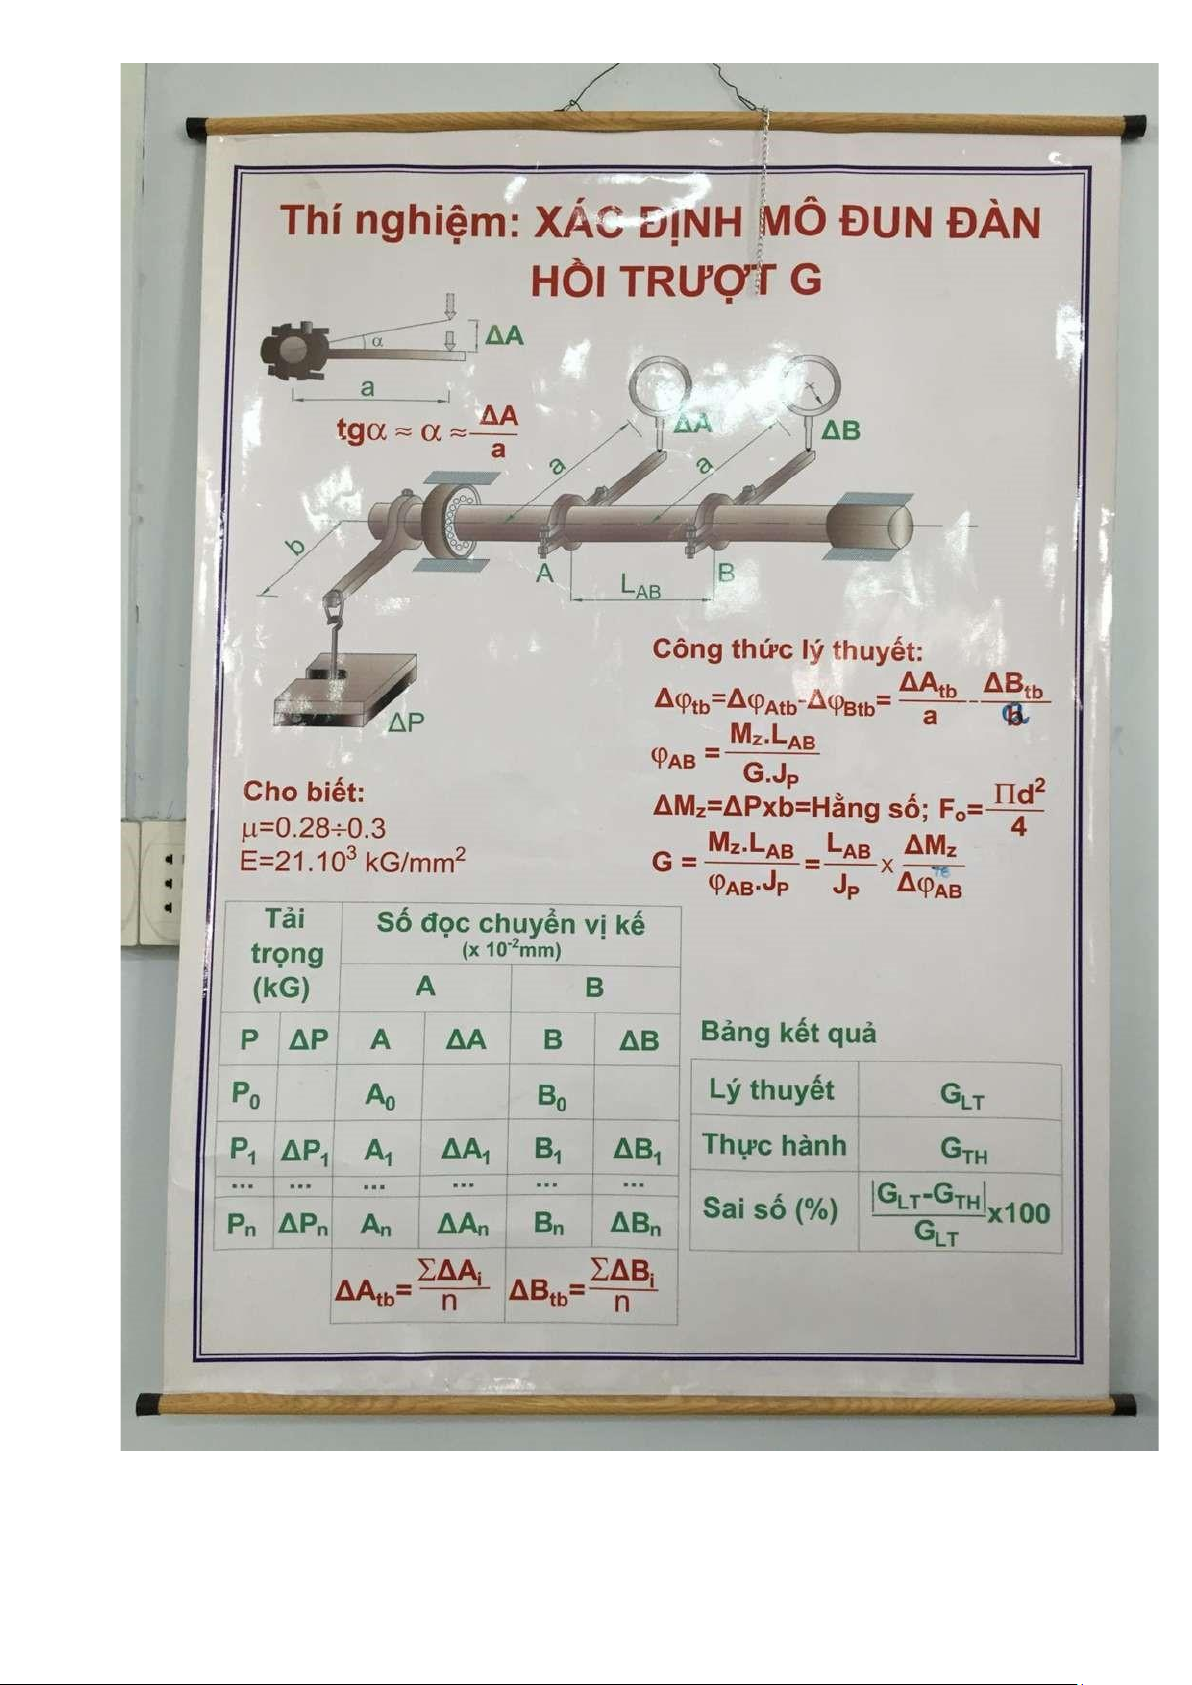 Thí nghiệm: XÁC ĐỊNH MÔ ĐUN ĐÀN
HỒI TRƯỢT G
ΔA
α
a
tgα ≈ α ≈ ΔA/a
ΔA
ΔB
a
a
b
A
B
L_AB
ΔP
Công thức lý thuyết:
Δφtb=ΔφAtb-ΔφBtb= ΔAtb/a - ΔBtb/a
φAB = Mz.LAB/G.JP
ΔMz=ΔPxb=Hằng số; Fo= Πd²/4
G = Mz.LAB/φAB.JP = LAB/JP x ΔMz/ΔφAB
Cho biết:
μ=0.28÷0.3
E=21.10³ kG/mm²
Tải trọng (kG)
Số đọc chuyển vị kế
(x 10⁻²mm)
A B
P ΔP A ΔA B ΔB
P₀ A₀ B₀
P₁ ΔP₁ A₁ ΔA₁ B₁ ΔB₁
... ... ... ... ... ...
Pn ΔPn An ΔAn Bn ΔBn
ΔAtb= ΣΔAi/n ΔBtb= ΣΔBi/n
Bảng kết quả
Lý thuyết GLT
Thực hành GTH
Sai số (%) |GLT-GTH|/GLT x100